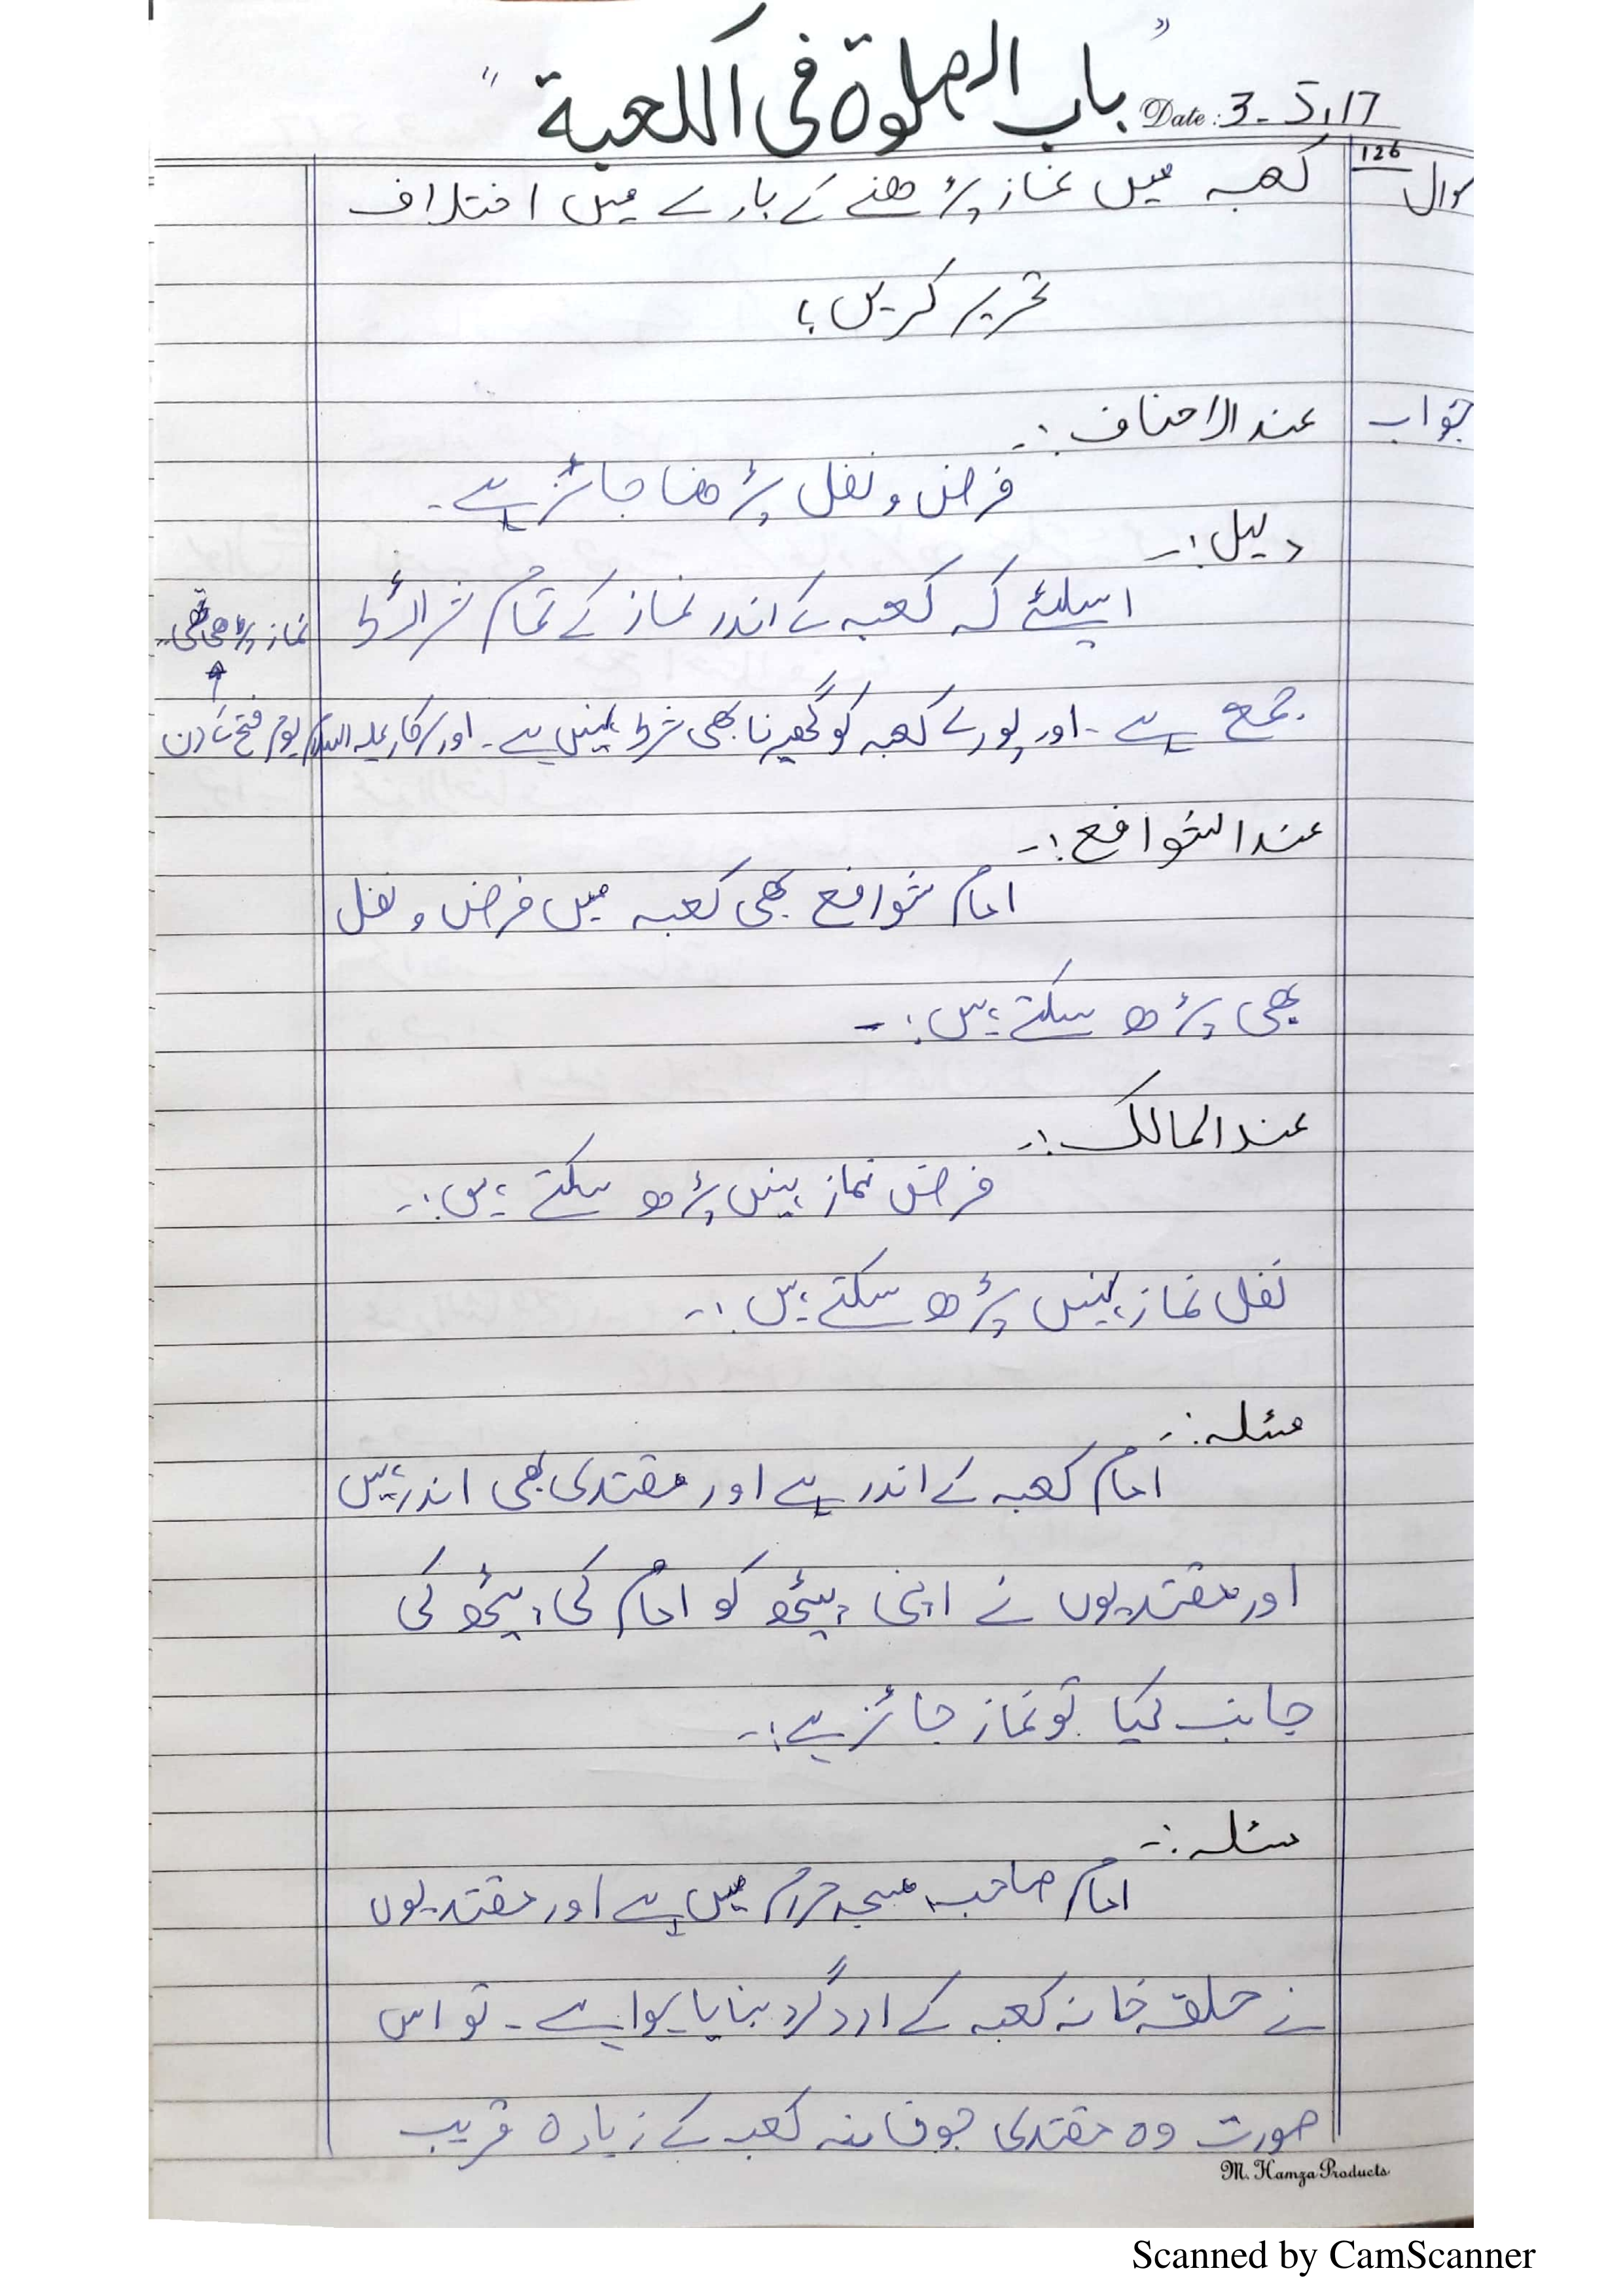 "باب الصلوة فی الکعبة"
Date: 3-5,17
سوال 126 کعبہ میں نماز پڑھنے کے بارے میں اختلاف
تحریر کریں؟
جواب عند الاحناف :۔
فرض و نفل پڑھنا جائز ہے ۔
دلیل :۔
اسلئے کہ کعبہ کے اندر نماز کے تمام شرائط
جمع ہے ۔ اور پورے کعبہ کو گھیرنا بھی شرط نہیں ہے ۔ اور سرکار علیہ السلام یوم فتح کے دن
نماز پڑھی تھی ۔
عند الشوافع :۔
امام شوافع بھی کعبہ میں فرض و نفل
بھی پڑھ سکتے ہیں :۔
عند المالک :۔
فرض نماز نہیں پڑھ سکتے ہیں :۔
نفل نماز نہیں پڑھ سکتے ہیں :۔
مسئلہ :۔
امام کعبہ کے اندر ہے اور مقتدی بھی اندر ہیں
اور مقتدیوں نے اپنی پیٹھ کو امام کی پیٹھ کی
جانب کیا تو نماز جائز ہے :۔
مسئلہ :۔
امام صاحب مسجد حرام میں ہے اور مقتدیوں
نے حلقہ خانہ کعبہ کے ارد گرد بنایا ہوا ہے ۔ تو اس
صورت وہ مقتدی جو خانہ کعبہ کے زیادہ قریب
M. Hamza Products
Scanned by CamScanner